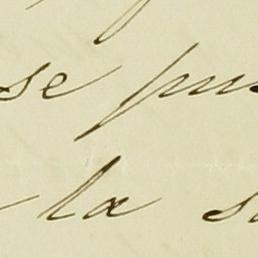 se pus
la s